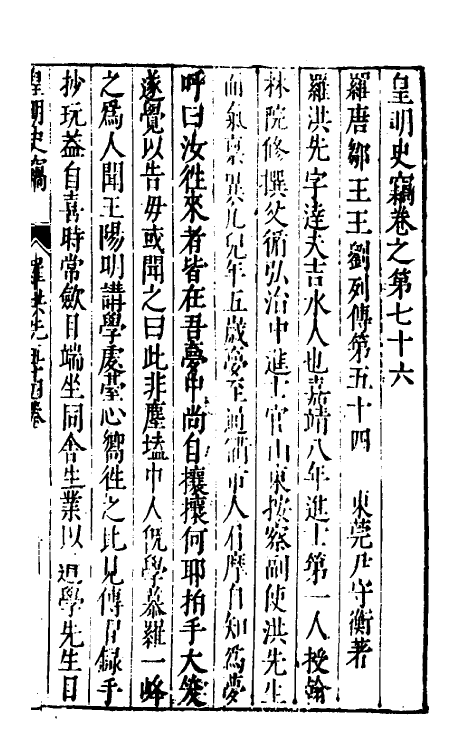 皇明史竊卷之第七十六
羅唐鄒王王劉列傳第五十四　東莞尹守衡著
羅洪先字達夫吉水人也嘉靖八年進士第一人授翰
林院修撰父循弘治中進士官山東按察副使洪先生
而氣稟異凡兒年五歲夢至通衢市人肩摩自知為夢
呼曰汝徃來者皆在吾夢中尚自攘攘何耶拍手大笑
遂覺以告毋或聞之曰此非塵壒中人旣學慕羅一峰
之為人聞王陽明講學虔臺心嚮徃之比見傳習錄手
抄玩益自喜時常歛目端坐同舍生業以 學先生目
皇明史竊 羅洪先 卷